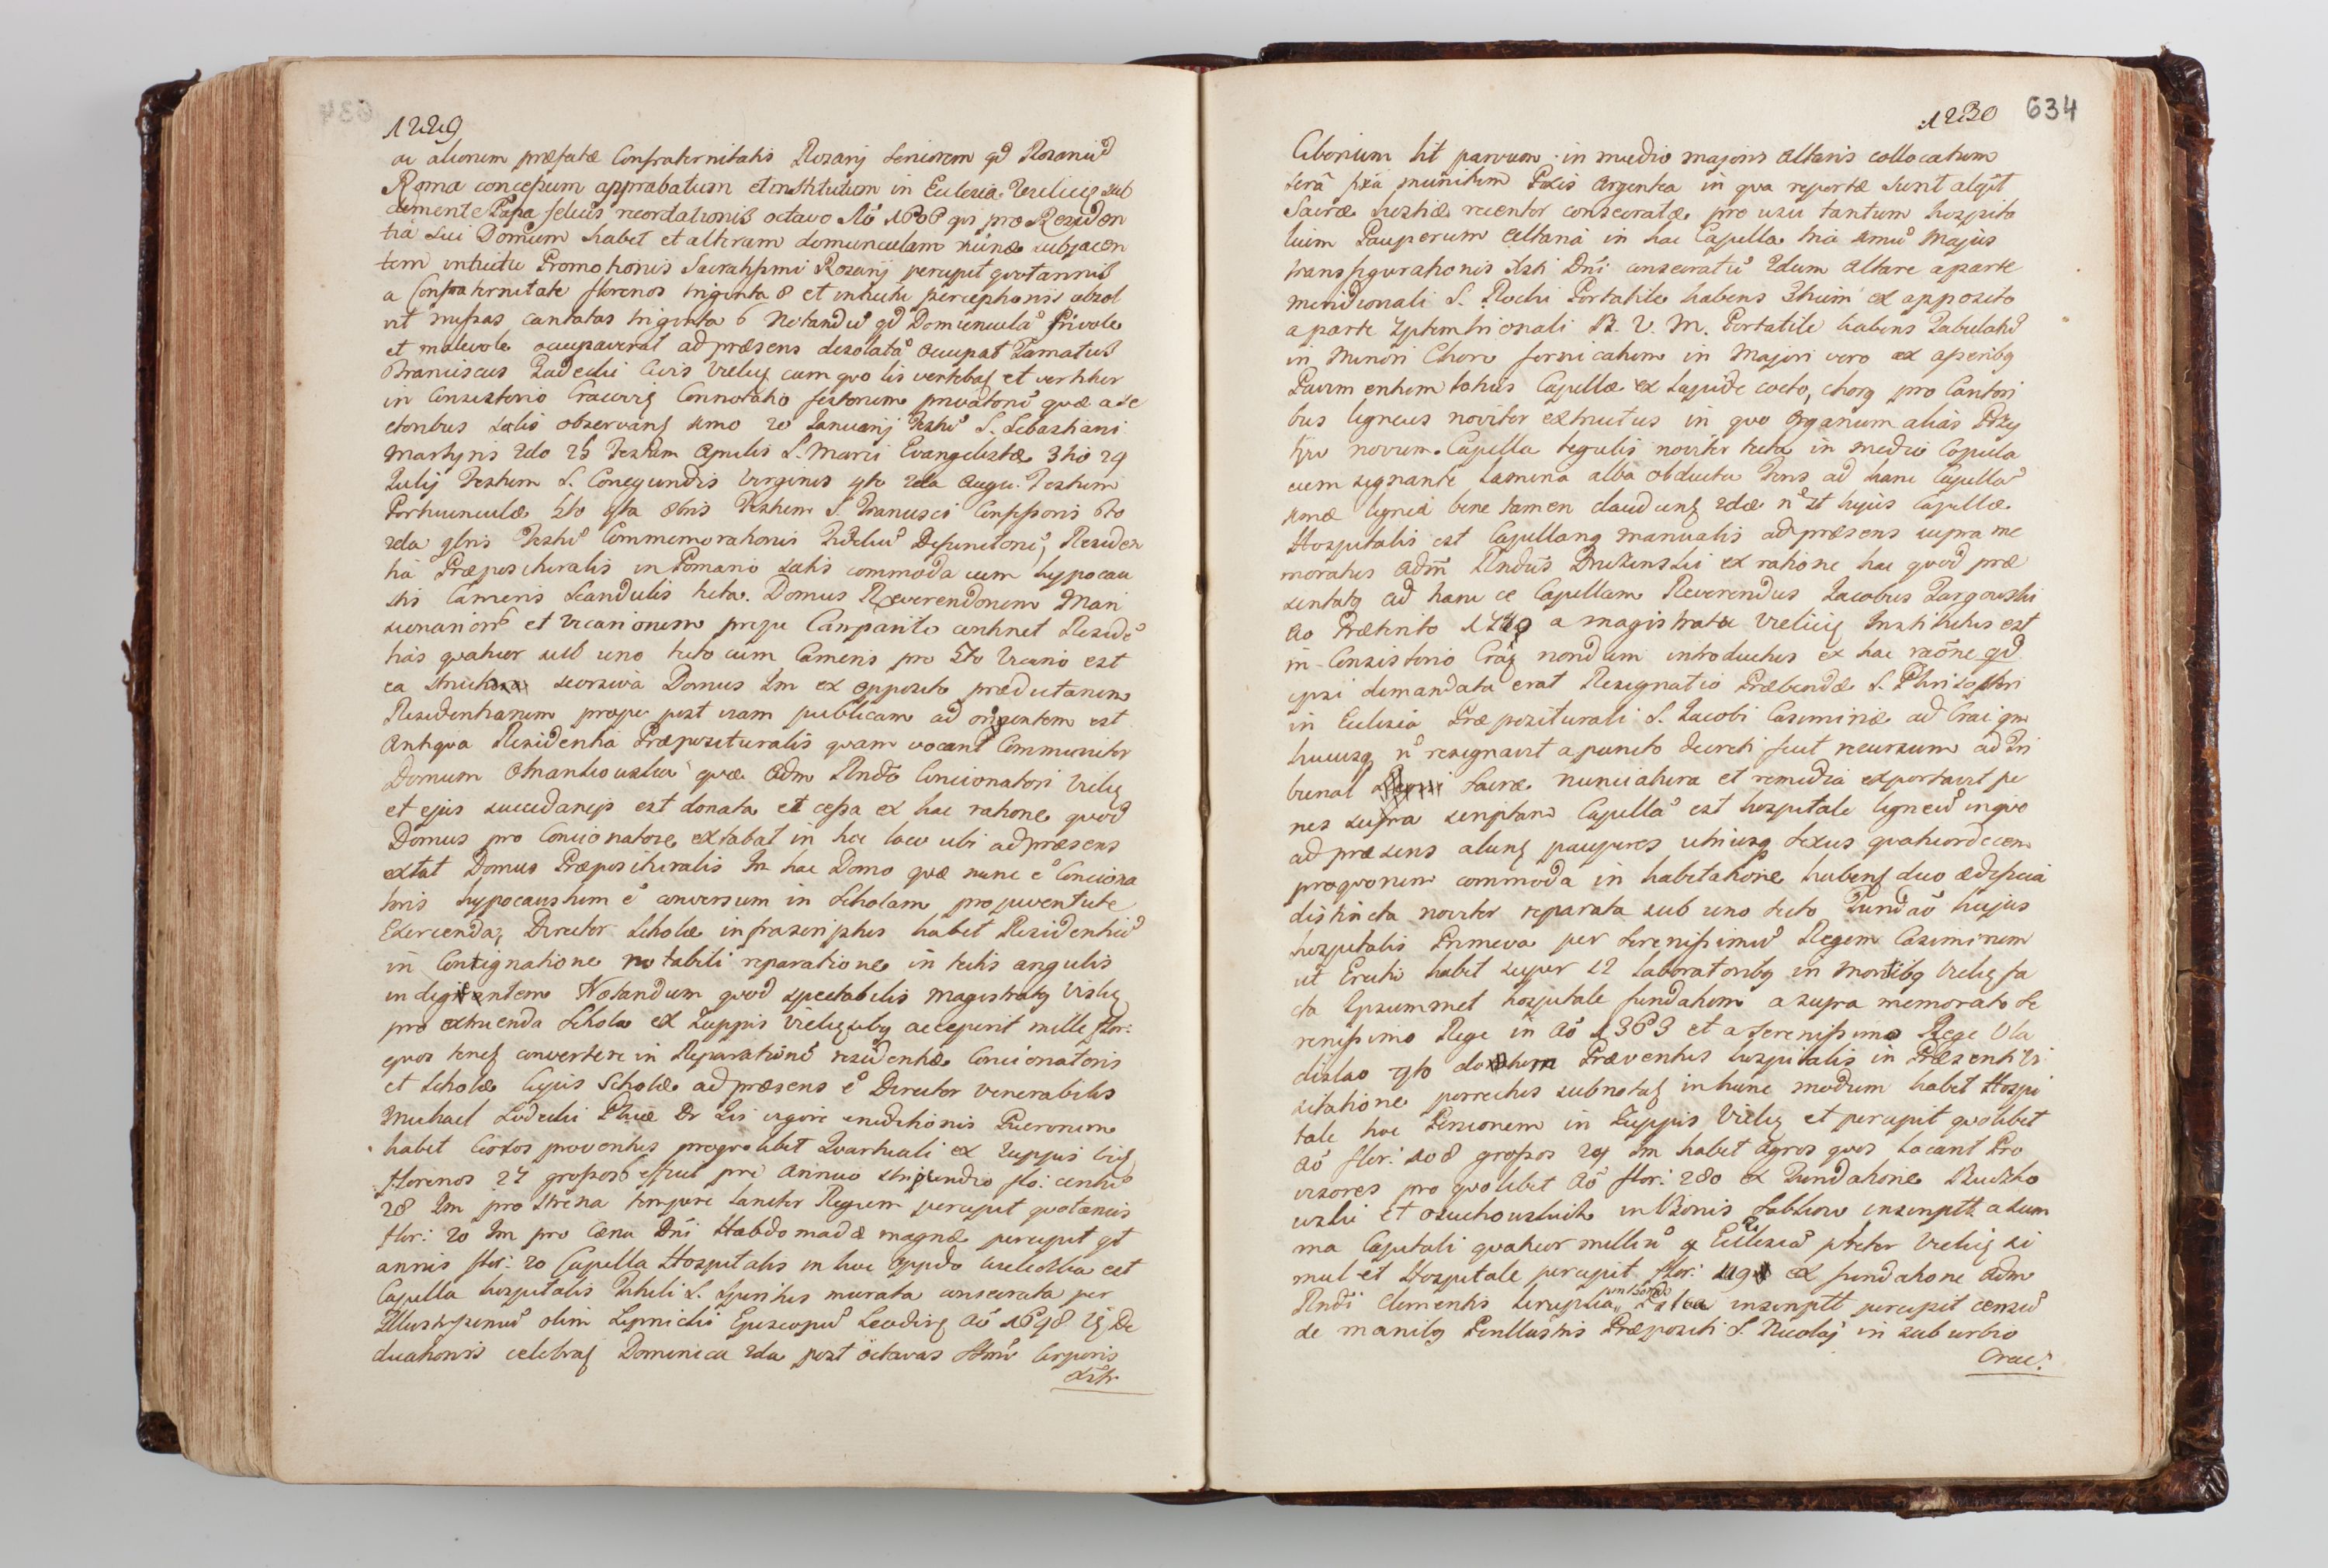 1229
ac aliorum præfatæ Confraternitatis Rozarij Seniorem qd Rozariũ
Roma concessum approbatum et institutum in Ecclesia Vieliciẽ sub
Clemente Papa felicis recordationis octavo Aõ 1606 qui pro Residen
tia sui Domum habet et alteram domunculam subjacen
tem intuitu Promotionis Sacratissimi Rozarij percipit quotannis
a Confraternitate florenos triginta 8 et intuitu perceptionis absol
vit missas cantatas triginta 6 Notandũ qd Domunculã frivole
et malevole occupaverat ad præsens desolatã occupat Famatus
Franciscus Civis Vieliẽ cum quo lis vertebaṫ et vertitur
in Consistorio Cracoviẽ Connotatio festorum privatorũ quæ a se
ctoribus salis observanṫ 1mo 20 Januarij Festũ S. Sebastiani
Martyris 2do 25 Festum Aprilis S. Marci Evangelistæ 3tio 24
Julij Festum S. Cunegundis Virginis 4to 2da Augu. Festum
Portiunculæ 5to 4ta 8bris Festum S. Francisci Confessoris 6to
2da 9bris Festũ Commemorationis Fideliũ Defunctorũ, Residen
tia Præposituralis in Pomario satis commoda cum hypocau
stis Cameris Scandulis tecta. Domus Reverendorum Man
sionariorũ et Vicariorum prope Campanile continet Residẽ
tias quatuor sub uno tecto cum Cameris pro 5to Vicario est
ea seorsiva Domus Im ex opposito prædictarum
Residentiarum prope post viam publicam ad orientem est
Antiqua Residentia Præposituralis quam vocant Communiter
Domum quæ Adm Rndo Concionatori Vieliẽ
et ejus succedaneis est donata et cessa ex hac ratione quod
Domus pro Concionatore extabat in hoc loco ubi ad præsens
extat Domus Præposituralis In hac Domo quæ nunc ẽ Conciona
toris hypocaustum ẽ conversum in Scholam pro juventute
Exercenda, Director Scholæ infrascriptus habet Residentiã
in Contignatione notabili reparatione in tectis angulis
indigentem Notandum quod spectabilis Magistratus Vieliẽ
pro extruenda Schola ex Zuppis acceperit mille flor:
quos teneṫ convertere in Reparationẽ residentiæ Concionatoris
et Scholæ Cujus Scholæ ad præsens ẽ Director Venerabilis
Michael Phiæ Dr Is vigore eruditionis Puerorum
habet Certos proventus pro quolibet Quartuali ex Zuppis
florenos 27 grossos 6 efficit pro Annuo stipendio flo: centũ
28 Im pro strena tempore Sanctor Regum percipit quotannis
flor: 20 Im pro Cæna Dni Habdomadæ magnæ percipit qt
annis flor: 20 Capella Hospitalis in hoc Oppido est
Capella hospitalis Tituli S. Spiritus murata consecrata per
Illustrissimũ olim Episcopũ Aõ 1698 De
dicationis celebraṫ Dominica 2da post Octavas Ssmi Corporis
Xsti

1230 634
Ciborium sit parvum in medio majoris Altaris collocatum
serâ munitum Pixis Argentea in qua repertæ sunt alqt
Sacræ hostiæ recenter consecratæ pro usu tantum hospita
lium Pauperum Altaria in hac Capella tria 1mũ Majus
transfigurationis Xsti Dni consecratũ 2dum Altare a parte
meridionali S. Rochi Portatile habens 3tium ex opposito
a parte Septemtrionali B. V. M. Portatile habens Tabulatũ
in Minori Choro fornicatum in Majori vero ex asseribus
Pavimentum totius Capellæ ex lapide cocto, chorus pro Cantori
bus ligneus noviter extructus in quo Organum alias Pozy
tyw novum. Capella tegulis noviter tecta in medio Copula
cum signante Lamina alba obducta Fens ad hanc Capellã
1mæ ligneæ bene tamen claudunṫ 2dæ nõ st hujus Capellæ
Hospitalis est Capellanus manualis ad præsens supra me
moratus Adm Rndus ex ratione hac quod præ
sentatus ad hanc ce Capellam Reverendus Jacobus Zargowski
Ao Præterito a Magistratu Vieliciẽ Institutus est
in Consistorio Craẽ nondum introductus ex hac raõne qd
ipsi demandata erat Resignatio Præbendæ S. Christophori
in Ecclesia Præpositurali S. Jacobi Casimiriæ ad Crac: qm
hucusq nõ resignavit a puncto decreti fecit recursum ad Tri
bunal Sacræ nunciaturæ et remedia exportavit pe
nes supra scriptam Capellã est hospitale ligneũ in quo
ad præsens alunṫ pauperes utriusq sexus quatuordecem
pro quorum commoda in habitatione habenṫ duo ædificia
distincta noviter reparata sub uno tecto Fundaõ hujus
hospitalis Primeva per Serenissimũ Regem Casimirum
ut Erectio habet super 12 Laboratoribus in Montibus Vieliẽ fa
cta Ipsummet hospitale fundatum a supra memorato Se
renissimo Rege in Aõ 1363 et a Serenissimo Rege Vla
dislao 4to Proventus hospitalis in Præsenti Vi
sitatione porrectus subnotaṫ in hunc modum habet Hospi
tale hoc Pensionem in Zuppis Vieliẽ et percipit quolibet
Aõ flor: 108 grossos 24 Im habet Agros quos Locant Pro
visores pro quolibet Aõ flor: 280 ex Fundatione Ruszko
wski et in Bonis inscriptt. a sum
ma Capitali quatuor milliũ q Ecclesiæ Vieliẽ si
mul et Hospitale percipit flor: ex fundatione Adm
Rndi Clementis in bonis inscriptt percipit censũ
de manibus Perillustris Præpositi S. Nicolaj in suburbio
Crac: